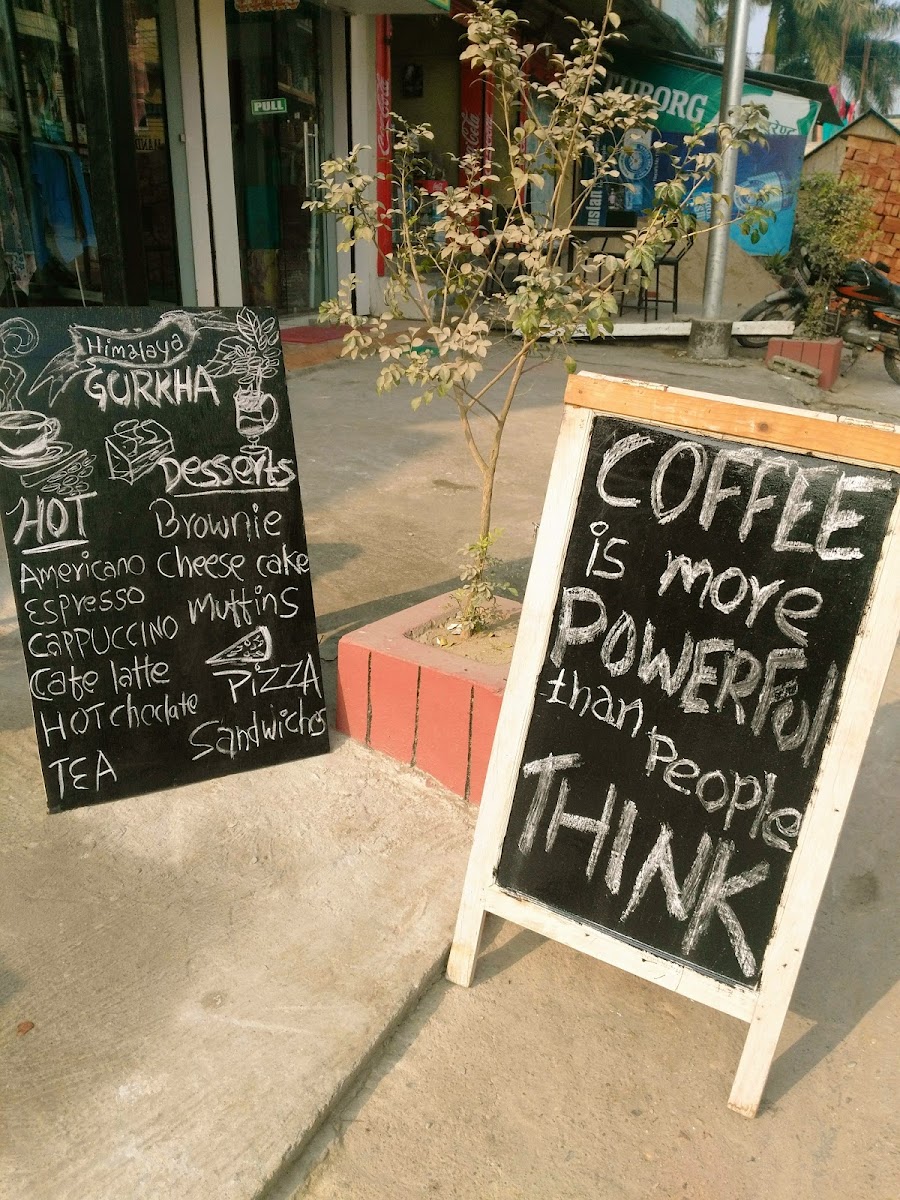 PULL
Coca-Cola
Coca-Cola
UBORG
Himalaya
GURKHA
HOT
Americano
Espresso
CAPPUCCINO
Cafe latte
HOT choclate
TEA
Desserts
Brownie
Cheese cake
Muffins
PIZZA
Sandwichs
COFFEE
is more
POWERFul
than People
THINK